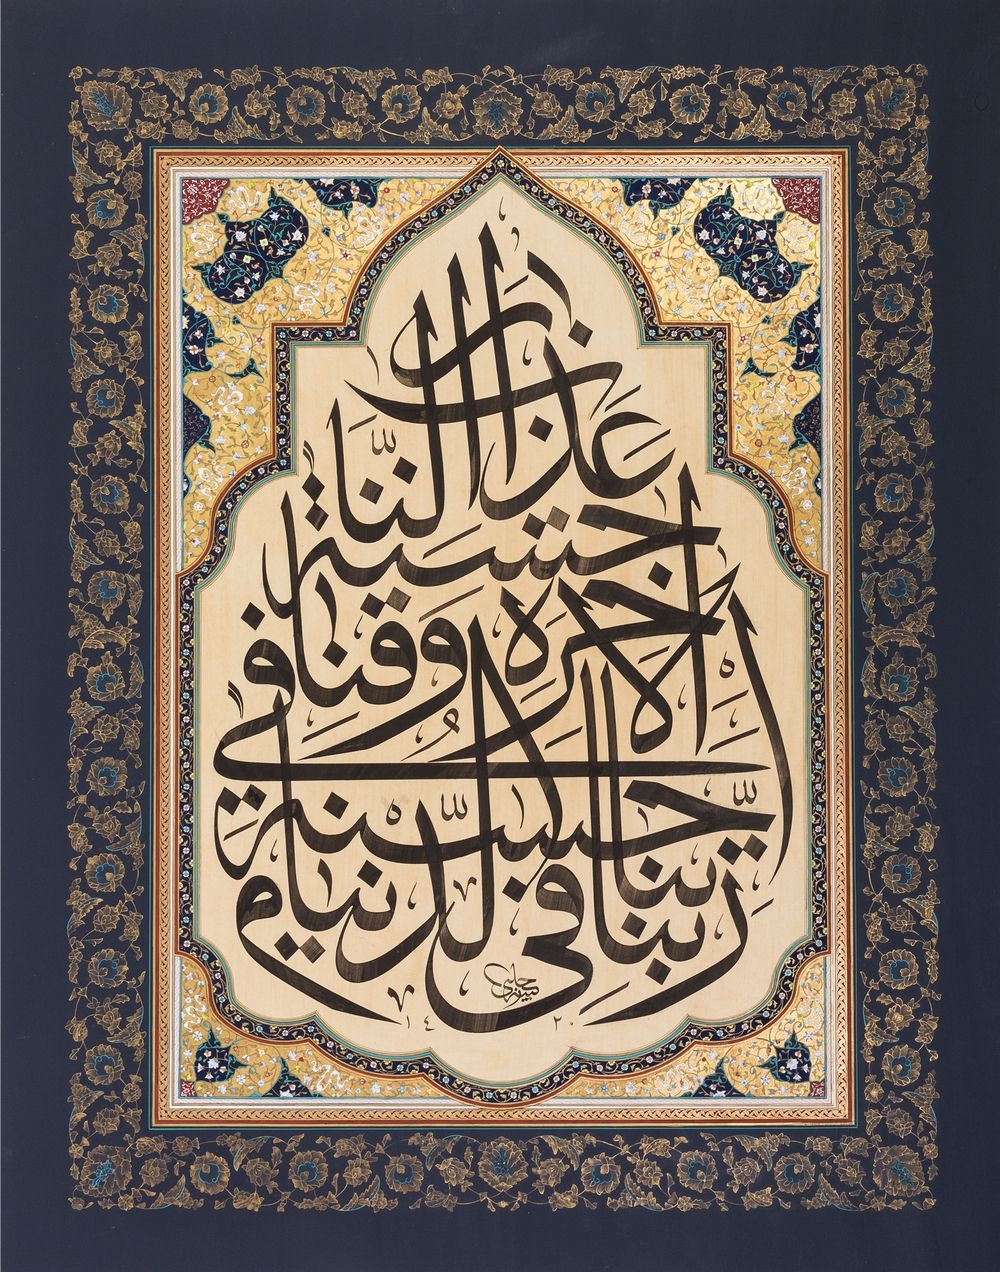 ربنا اتنا فى الدنيا
حسنة وفى الاخرة
حسنة وقنا
عذاب النار
١٤٢٠